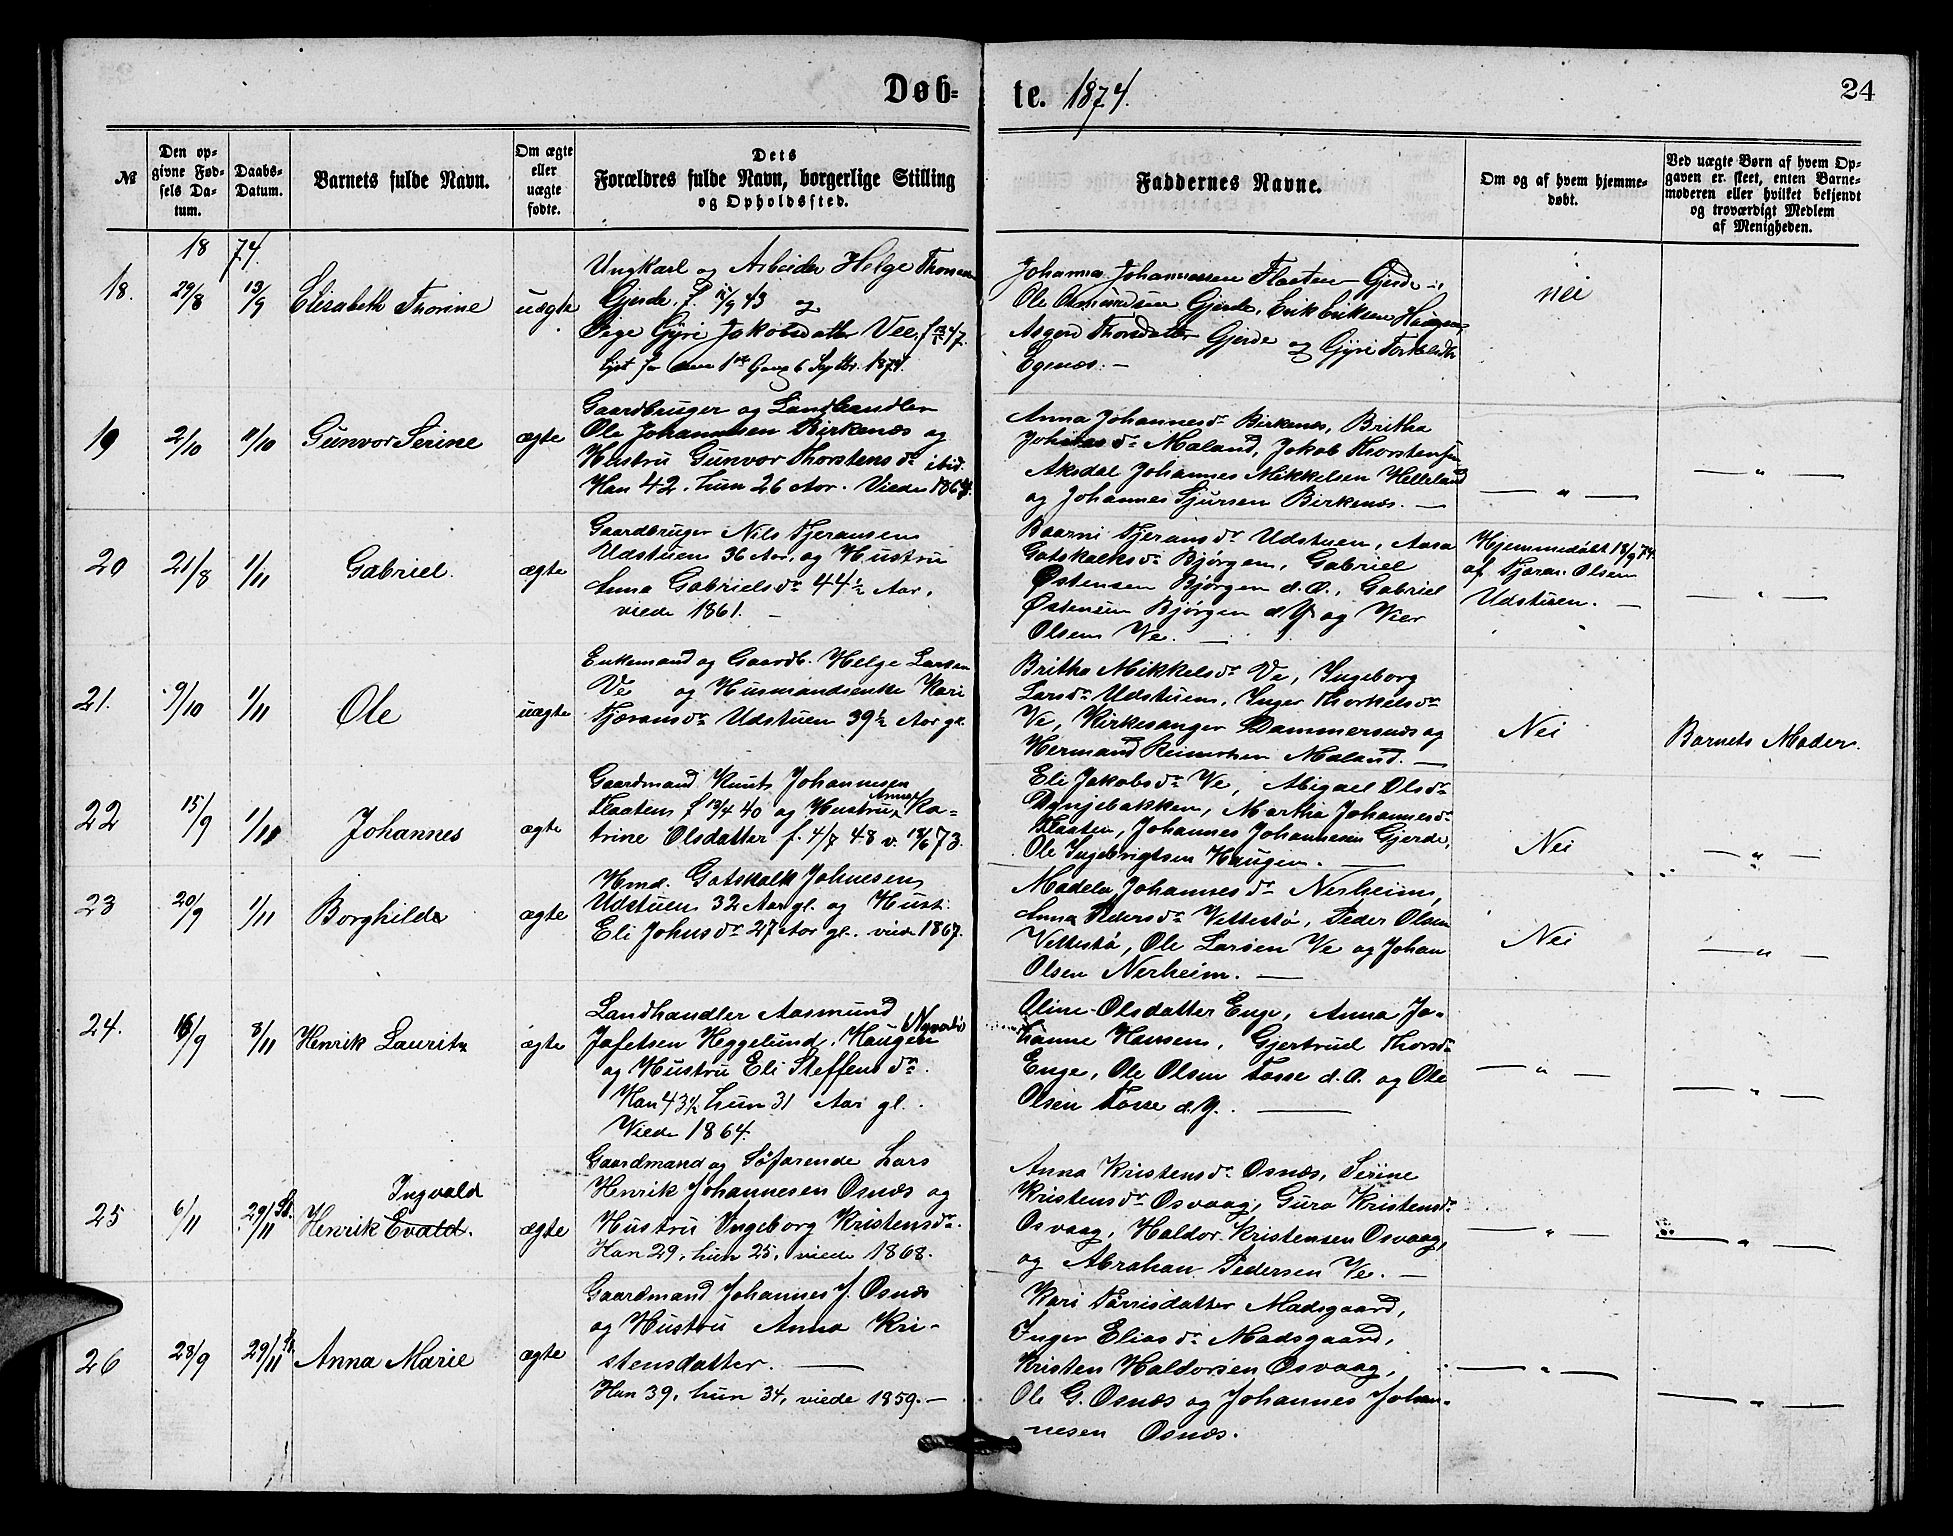 Døb-
te. 1874.
24
№
Den op-
givne Fød-
sels Da-
tum.
Daabs-
Datum.
Barnets fulde Navn.
Om ægte
eller
uægte
fødte.
Dets
Forældres fulde Navn, borgerlige Stilling
og Opholdssted.
Faddernes Navne.
Om og af hvem hjemme-
døbt.
Ved uægte Børn af hvem Op-
gaven er skeet, enten Barne-
moderen eller hvilket bekjendt
og troværdigt Medlem
af Menigheden.
18 74.
18. 29/8 13/9 Elisabeth Thorine uægte
Ungkarl og Arbeider Helge
Gjerde, f. /9 43 og
Pige Gyri Jakobsdatter Vee, f. 47.
lyst for 1ste Gang 6 Septbr. 1874.
Johannes Johannessen Flaaten Gjerde,
Ole Osmundsen Gjerde, Erik Eriksen Haugen,
Asgerd Thorsdatter Gjerde og Gyri
Egenæs. —
nei
19 2/10 11/10 Gunvor Serine ægte
Gaardbruger og Landhandler
Ole Johannesen Birkenæs og
Hustru Gunvor Thorstensdr ibid.
Han 42, hun 26 Aar. Viede 1868.
Anna Johannesdr Birkenæs, Britha
Johnsdr Maland, Jakob Thorstensen
Aksdal Johannes Mikkelsen Helleland
og Johannes Sjursen Birkenæs. —
— " —
— " —
20 21/8 1/11 Gabriel. ægte
Gaardbruger Nils Tjeransen
Udstuen 36 Aar, og Hustru
Anna Gabrielsdr 44½ Aar,
viede 1861. —
Baarni Tjeransdr Udstuen, Aasa
Gotskalksdr Bjørgen, Gabriel
Østensen Bjørgen d.Æ., Gabriel
Østensen Bjørgen d.Y. og Vier
Olsen Ve. —
Hjemmedøbt 18/9 74
af Tjeran Olsen
Udstuen. —
— " —
21. 9/10 1/11 Ole uægte
Enkemand og Gaardb. Helge Larsen
Ve og Husmandsenke Kari
Tjæransdr Udstuen 39½ Aar gl.
Britha Mikkelsdr Ve, Ingeborg
Larsdr Udstuen, Inger Thorkelsdr
Ve, Kirkesanger Dammersnæs og
Hermand Reinertsen Maland. —
Nei
Barnets Moder.
22 15/9 1/11 Johannes ægte
Gaardmand Knut Johannesen
Flaaten f 13/4 40 og Hustru Anne Ka-
trine Olsdatter f. 4/8 48 v. 18/6 73.
Eli Jakobsdr Ve, Abigael Olsdr
Dynjebakken, Martha Johannesdr
Flaaten, Johannes Johannesen Gjerde,
Ole Ingebrigtsen Haugen. —
Nei
— " —
23 20/9 1/11 Borghilda ægte
Hmd. Gotskalk Johnesen
Udstuen 32 Aar gl. og Hust.
Eli Johnsdr 27 Aar gl. viede 1867.
Madela Johannesdr Nerheim,
Anna Pedersdr Vettestø, Peder Olsen
Vettestø, Ole Larsen Ve og Johan
Olsen Nerheim. —
Nei
— " —
24. 16/9 8/11 Henrik Lauritz ægte
Landhandler Aasmund
Jafetsen Heggelund, Haugen
og Hustru Eli Steffensdr.
Han 43½ hun 31 Aar gl.
Viede 1864.
Oline Olsdatter Enge, Anna Jo-
hanne Hansen, Gjertrud Thorsdr
Enge, Ole Olsen Fosse d.Æ. og Ole
Olsen Fosse d.Y. —
— " —
— " —
25 6/11 29/11 St. Ingvald
Henrik Evald. ægte
Gaardmand og Søfarende Lars
Henrik Johannesen Osnæs og
Hustru Ingeborg Kristensdr.
Han 29, hun 25, viede 1868.
Anna Kristensdr Osnæs, Serine
Kristensdr Osvaag, Guro Kristensdr
Osvaag, Haldor Kristensen Osvaag,
og Abrahan Pedersen Ve. —
— " —
— " —
26 28/9 29/11 St. Anna Marie ægte
Gaardmand Johannes J. Osnæs
og Hustru Anna Kri-
stensdatter. —
Han 39, hun 34, viede 1859. —
Kari Tørrisdatter Madsgaard,
Inger Eliasdr Madsgaard,
Kristen Haldorsen Osvaag,
Ole G. Osnæs og Johannes Johan-
nesen Osnæs.
— " —
— " —